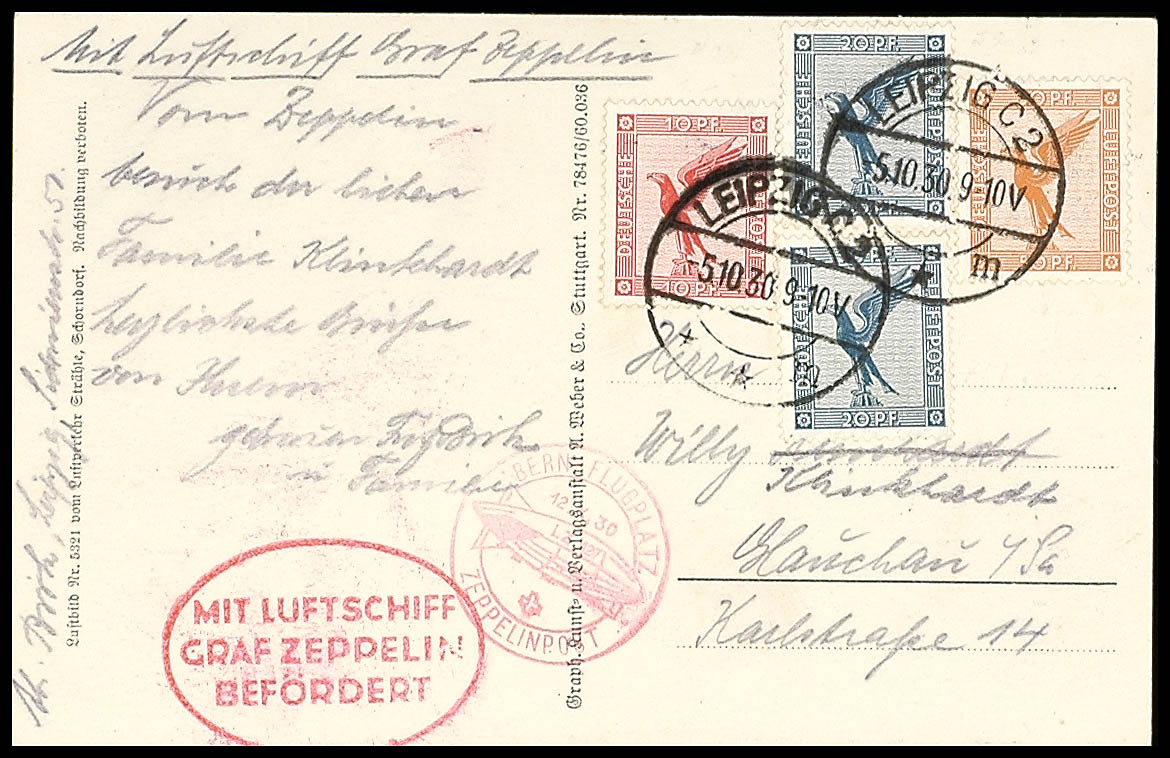 Mit Luftschiff Graf Zeppelin
Vom Zeppelin
besuch der lieben
Familie Klinkhardt
herzlichste Grüße
von Ihrem
getreuen
u Familie
Leipzig
Luftbild Nr. 5321 vom Luftverkehr Strähle, Schorndorf. Nachbildung verboten.
Graph. Kunst- u. Verlagsanstalt A. Weber & Co., Stuttgart. Nr. 78476/60.036
10 PF.
DEUTSCHE
FLUGPOST
10 PF.
20 PF.
DEUTSCHE
DEUTSCHE
FLUGPOST
20 PF.
PF.
DEUTSCHE
FLUGPOST
PF.
LEIPZIG C 2
-5.10.30 9-10V
* m
LEIPZIG C 2
-5.10.30 9-10V
Herrn
Willy
Klinkhardt
Glauchau i/Sa
Karlstraße 14
FLUGPLATZ
30
ZEPPELINPOST
MIT LUFTSCHIFF
GRAF ZEPPELIN
BEFÖRDERT